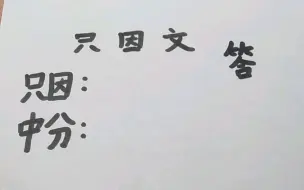 只因文
答
只因：
中分：